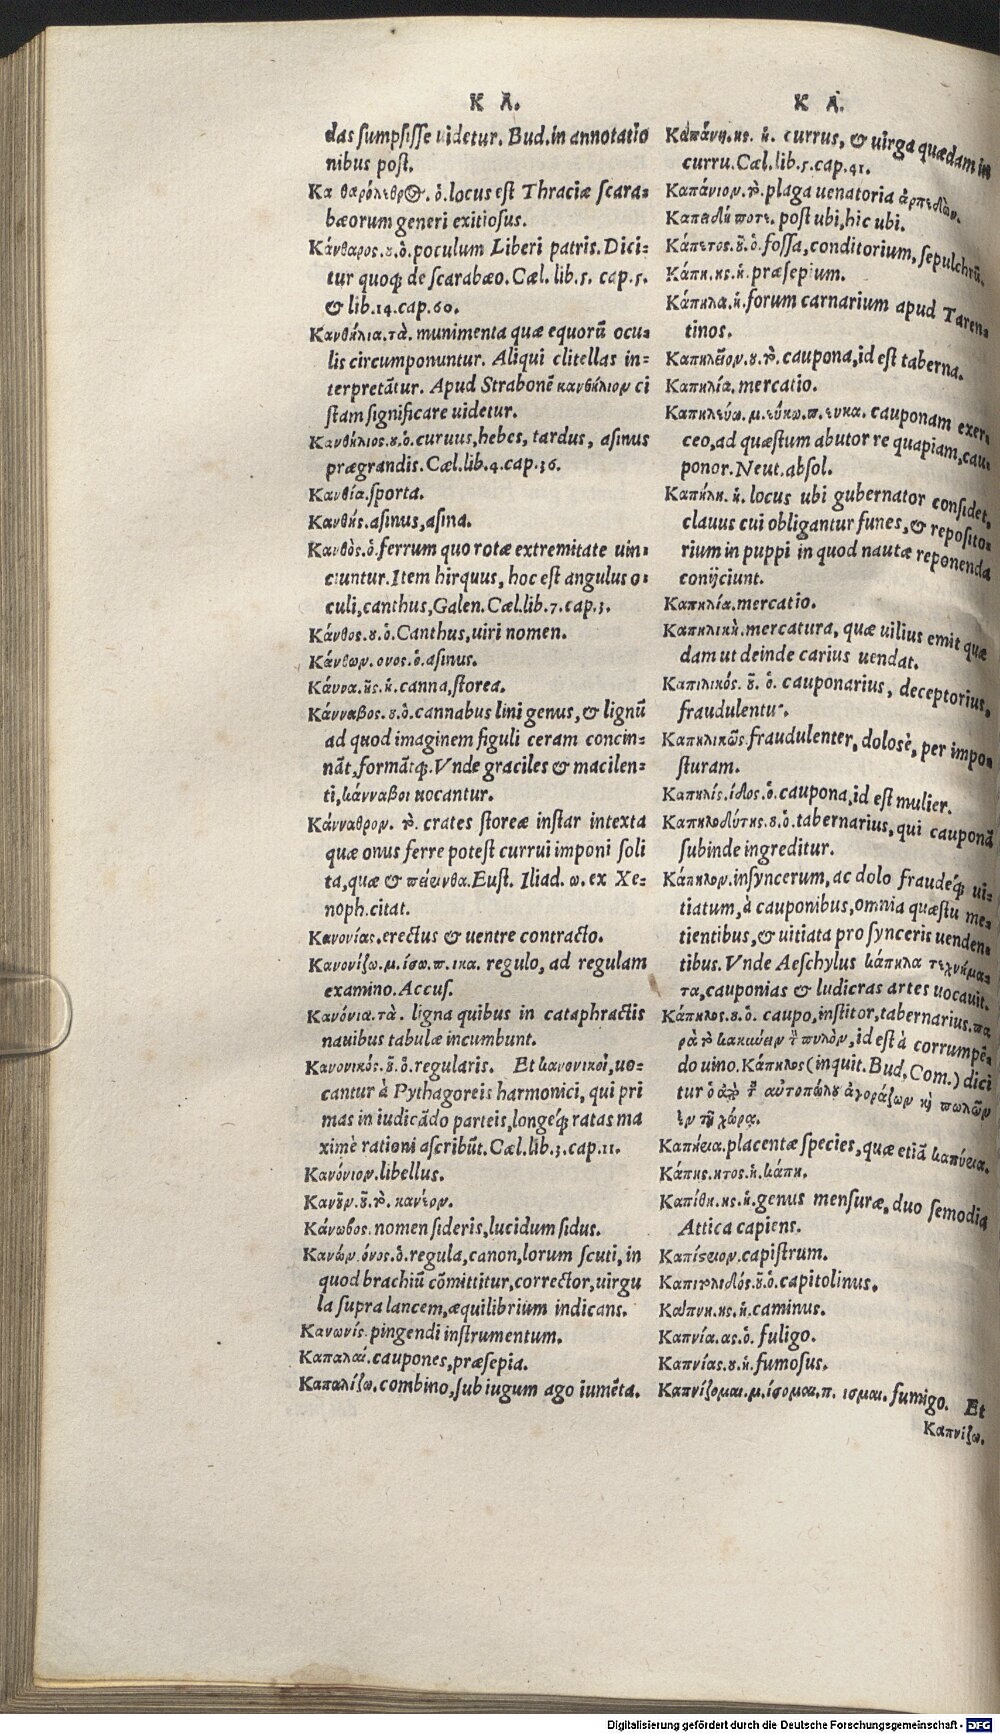 K A.
das sumpsisse uidetur. Bud. in annotatio
nibus post.
Κα θαρόλεθρος. ὁ. locus est Thraciæ scara-
bæorum generi exitiosus.
Κάνθαρος. ου. ὁ. poculum Liberi patris. Dici-
tur quoq; de scarabæo. Cæl. lib. 5. cap. 5.
& lib. 14. cap. 60.
Κανθήλια. τὰ. munimenta quæ equorũ ocu-
lis circumponuntur. Aliqui clitellas in-
terpretãtur. Apud Strabonẽ κανθήλιον ci
stam significare uidetur.
Κανθήλιος. ου. ὁ. curuus, hebes, tardus, asinus
prægrandis. Cæl. lib. 4. cap. 36.
Κανθία. sporta.
Κανθής. asinus, asina.
Κανθὸς. ὁ. ferrum quo rotæ extremitate uin-
ciuntur. Item hirquus, hoc est angulus o-
culi, canthus, Galen. Cæl. lib. 7. cap. 3.
Κάνθος. ου. ὁ. Canthus, uiri nomen.
Κάνθων. ονος. ὁ. asinus.
Κάννα. ης. ἡ. canna, storea.
Κάνναβος. ου. ὁ. cannabus lini genus, & lignũ
ad quod imaginem figuli ceram concin-
nãt, formãtq;. Vnde graciles & macilen-
ti, κάνναβοι uocantur.
Κάνναθρον. τὸ. crates storeæ instar intexta
quæ onus ferre potest currui imponi soli
ta, quæ & πείρινθα. Eust. Iliad. ω. ex Xe-
noph. citat.
Κανονίας. erectus & uentre contracto.
Κανονίζω. μ. ίσω. π. ικα. regulo, ad regulam
examino. Accus.
Κανόνια. τὰ. ligna quibus in cataphractis
nauibus tabulæ incumbunt.
Κανονικός. οῦ. ὁ. regularis. Et κανονικοὶ, uo-
cantur à Pythagoreis harmonici, qui pri
mas in iudicãdo parteis, longeq́; ratas ma
ximè rationi ascribũt. Cæl. lib. 3. cap. 11.
Κανόνιον. libellus.
Κανοῦν. οῦ. τὸ. κανέον.
Κάνωβος. nomen sideris, lucidum sidus.
Κανών. όνος. ὁ. regula, canon, lorum scuti, in
quod brachiũ cõmittitur, corrector, uirgu
la supra lancem, æquilibrium indicans.
Κανωνίς. pingendi instrumentum.
Καπαλαί. caupones, præsepia.
Καπαλίζω. combino, sub iugum ago iumẽta.
K A.
Καπάνη. ης. ἡ. currus, & uirga quædam in
curru. Cæl. lib. 5. cap. 41.
Καπάνιον. τὸ. plaga uenatoria ἁρπεδὼν.
Καπαδή ποτε. post ubi, hic ubi.
Κάπετος. ου. ὁ. fossa, conditorium, sepulchrũ.
Κάπη. ης. ἡ. præsepium.
Κάπηλα. ἡ. forum carnarium apud Taren-
tinos.
Καπηλεῖον. ου. τὸ. caupona, id est taberna.
Καπηλία. mercatio.
Καπηλεύω. μ. εύσω. π. ευκα. cauponam exer-
ceo, ad quæstum abutor re quapiam, cau-
ponor. Neut. absol.
Καπήλη. ἡ. locus ubi gubernator considet,
clauus cui obligantur funes, & reposito-
rium in puppi in quod nautæ reponenda
conijciunt.
Καπηλία. mercatio.
Καπηλικὴ. mercatura, quæ uilius emit quæ
dam ut deinde carius uendat.
Καπιλικός. οῦ. ὁ. cauponarius, deceptorius,
fraudulentus.
Καπηλικῶς. fraudulenter, dolosè, per impo-
sturam.
Καπηλίς. ίδος. ὁ. caupona, id est mulier.
Καπηλοδύτης. ου. ὁ. tabernarius, qui cauponã
subinde ingreditur.
Κάπηλον. insyncerum, ac dolo fraudeq́; ui-
tiatum, à cauponibus, omnia quæstu me-
tientibus, & uitiata pro synceris uenden-
tibus. Vnde Aeschylus κάπηλα τεχνήμα-
τα, cauponias & ludicras artes uocauit.
Κάπηλος. ου. ὁ. caupo, institor, tabernarius. πα
ρὰ τὸ κακύειν τὸν πηλὸν, id est à corrumpẽ
do uino. Κάπηλος (inquit Bud. Com.) dici
tur ὁ παρὰ τοῦ αὐτοπώλου ἀγοράζων καὶ πωλῶν
ἐν τῇ χώρᾳ.
Καπήεια. placentæ species, quæ etiã καπύεια.
Κάπης. ητος. ἡ. κάπη.
Καπίθη. ης. ἡ. genus mensuræ, duo semodia
Attica capiens.
Καπίστειον. capistrum.
Καπιτωλιδός. οῦ. ὁ. capitolinus.
Κάπνη. ης. ἡ. caminus.
Καπνία. ας. ὁ. fuligo.
Καπνίας. ου. ἡ. fumosus.
Καπνίζομαι. μ. ίσομαι. π. ισμαι. fumigo. Et
Καπνίζω.
Digitalisierung gefördert durch die Deutsche Forschungsgemeinschaft - DFG